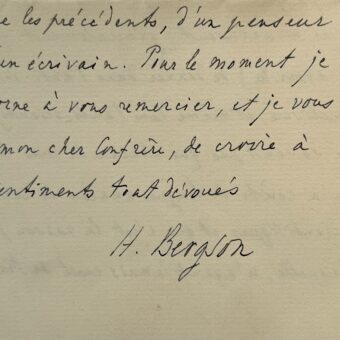 e les précédents, d'un penseur
un écrivain. Pour le moment je
orne à vous remercier, et je vous
mon cher Confrère, de croire à
entiments tout dévoués
H. Bergson